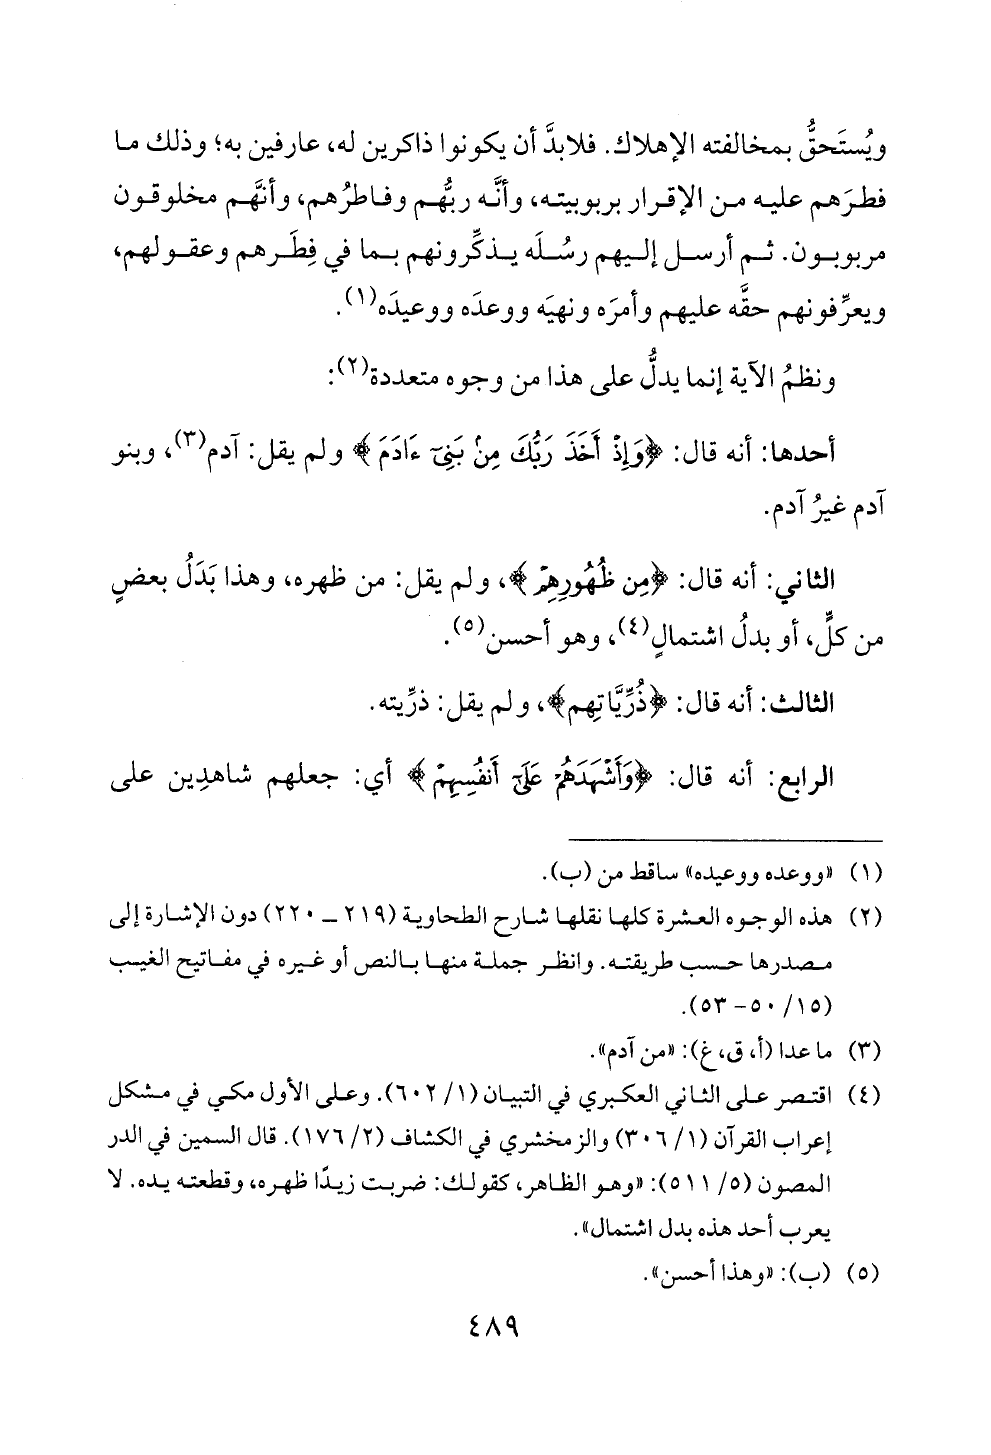 ويُستَحقُّ بمخالفته الإهلاك. فلابدَّ أن يكونوا ذاكرين له، عارفين به؛ وذلك ما
فطرَهم عليه من الإقرار بربوبيته، وأنَّه ربُّهم وفاطرُهم، وأنَّهم مخلوقون
مربوبون. ثم أرسل إليهم رسُلَه يذكِّرونهم بما في فِطَرهم وعقولهم،
ويعرِّفونهم حقَّه عليهم وأمرَه ونهيَه ووعدَه ووعيدَه(١).
ونظمُ الآية إنما يدلُّ على هذا من وجوه متعددة(٢):
أحدها: أنه قال: ﴿وَإِذْ أَخَذَ رَبُّكَ مِنۢ بَنِىٓ ءَادَمَ﴾ ولم يقل: آدم(٣)، وبنو
آدم غيرُ آدم.
الثاني: أنه قال: ﴿مِن ظُهُورِهِمْ﴾، ولم يقل: من ظهره، وهذا بَدَلُ بعضٍ
من كلٍّ، أو بدلُ اشتمالٍ(٤)، وهو أحسن(٥).
الثالث: أنه قال: ﴿ذُرِّيَّاتِهِم﴾، ولم يقل: ذرِّيته.
الرابع: أنه قال: ﴿وَأَشْهَدَهُمْ عَلَىٰٓ أَنفُسِهِمْ﴾ أي: جعلهم شاهدِين على
(١) «ووعده ووعيده» ساقط من (ب).
(٢) هذه الوجوه العشرة كلها نقلها شارح الطحاوية (٢١٩ – ٢٢٠) دون الإشارة إلى
مصدرها حسب طريقته. وانظر جملة منها بالنص أو غيره في مفاتيح الغيب
(١٥/ ٥٠- ٥٣).
(٣) ما عدا (أ، ق، غ): «من آدم».
(٤) اقتصر على الثاني العكبري في التبيان (١/ ٦٠٢). وعلى الأول مكي في مشكل
إعراب القرآن (١/ ٣٠٦) والزمخشري في الكشاف (٢/ ١٧٦). قال السمين في الدر
المصون (٥/ ٥١١): «وهو الظاهر، كقولك: ضربت زيدًا ظهره، وقطعته يده. لا
يعرب أحد هذه بدل اشتمال».
(٥) (ب): «وهذا أحسن».
٤٨٩